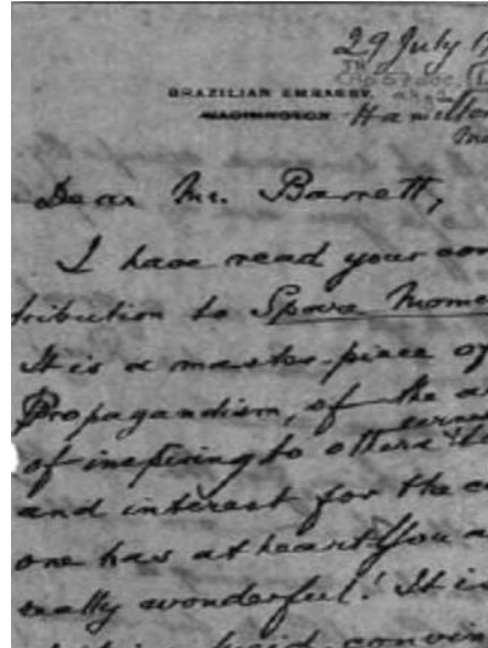 29 July 1
BRAZILIAN EMBASSY.
WASHINGTON Hamilton
Dear Mr. Barrett,
I have read your con
tribution to Spare Mome
It is a master-piece of
Propagandism, of the a
earnes
of inspiring to others
and interest for the c
one has at heart. You a
really wonderful! It is
convin